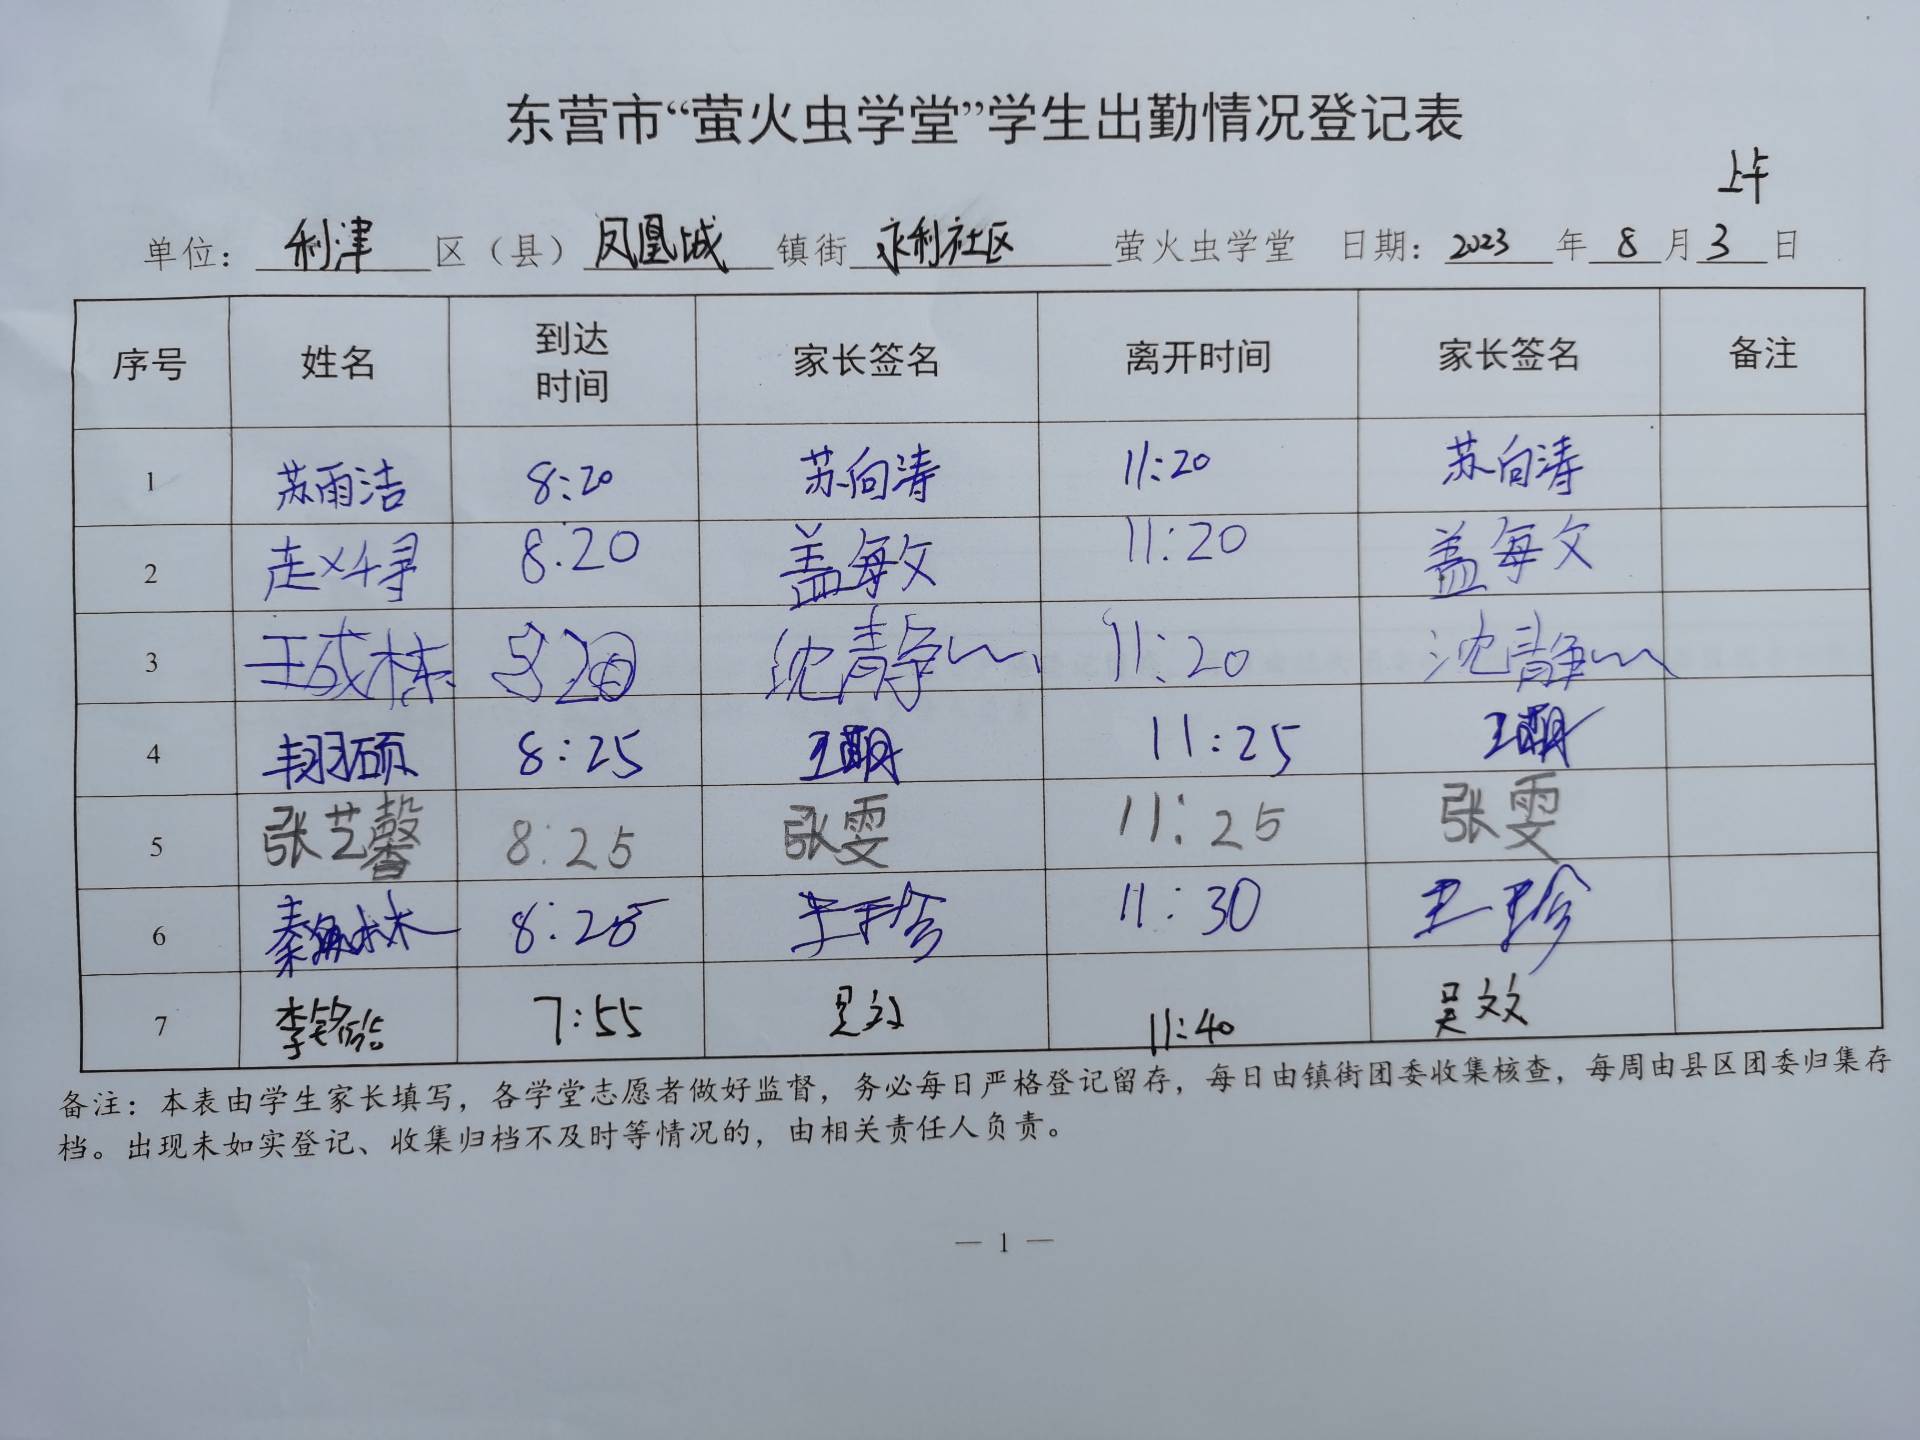 东营市“萤火虫学堂”学生出勤情况登记表
上午
单位：利津区（县）凤凰城镇街永利社区萤火虫学堂 日期：2023年8月3日
序号 姓名 到达时间 家长签名 离开时间 家长签名 备注
1 苏雨洁 8:20 苏向涛 11:20 苏向涛
2 8.20 盖每文 11:20 盖每文
3 王成栋 沈静 11:20 沈静
4 8:25 11:25
5 张艺馨 8:25 张雯 11:25 张雯
6 8:25 11:30 王珍
7 7:55 11:40 吴文文
备注：本表由学生家长填写，各学堂志愿者做好监督，务必每日严格登记留存，每日由镇街团委收集核查，每周由县区团委归集存
档。出现未如实登记、收集归档不及时等情况的，由相关责任人负责。
— 1 —